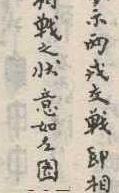 示兩戎交戰即相
相戰之狀意如左圖